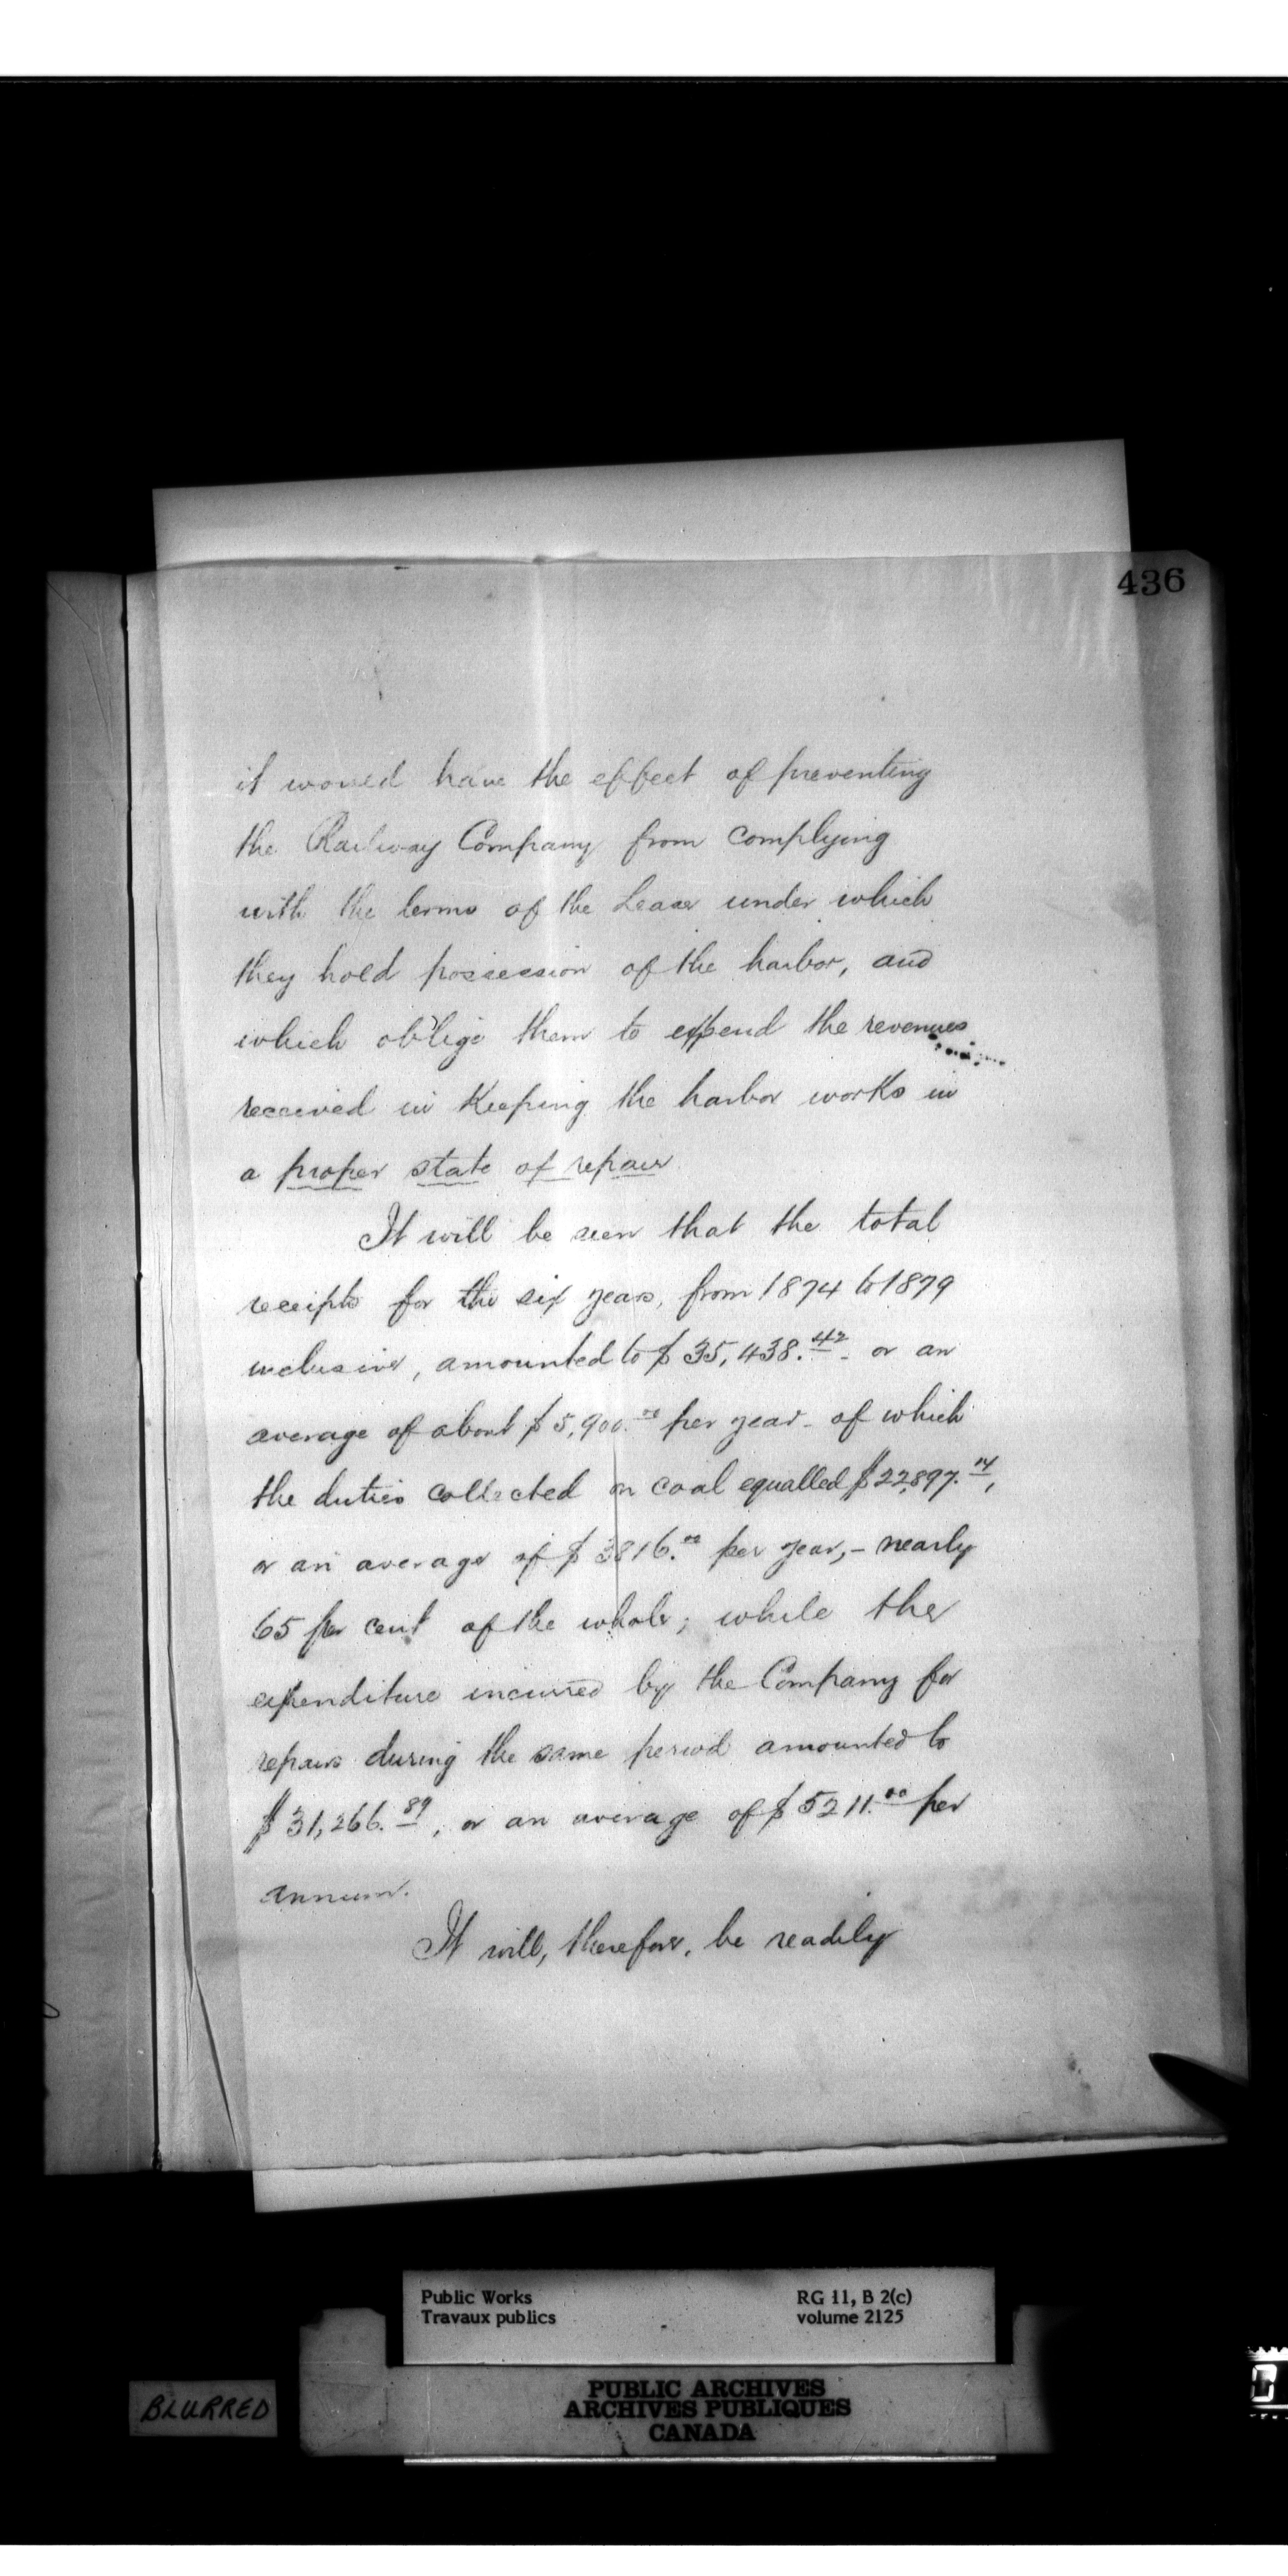 436
it would have the effect of preventing
the Railway Company from complying
with the terms of the Lease under which
they hold possession of the harbor, and
which oblige them to expend the revenues
received in Keeping the harbor works in
a proper state of repair
It will be seen that the total
receipts for the six years, from 1874 to 1879
inclusive, amounted to $35,438.42 - or an
average of about $5,900.00 per year - of which
the duties collected on coal equalled $22,897.14,
or an average of $3816.00 per year, - nearly
65 per cent of the whole; while the
expenditure incurred by the Company for
repairs during the same period amounted to
$31,266.89, or an average of $5211.00 per
annum.
It will, therefore, be readily
Public Works
Travaux publics
RG 11, B 2(c)
volume 2125
BLURRED
PUBLIC ARCHIVES
ARCHIVES PUBLIQUES
CANADA